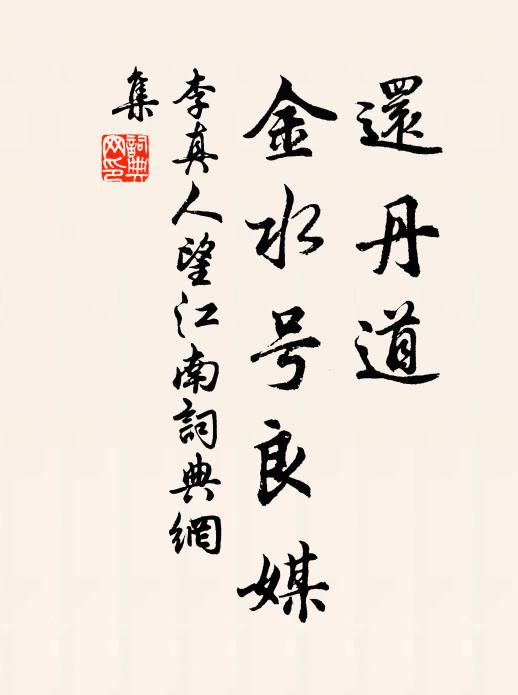 還丹道
金水号良媒
李真人望江南詞典網
集
詞典
网印